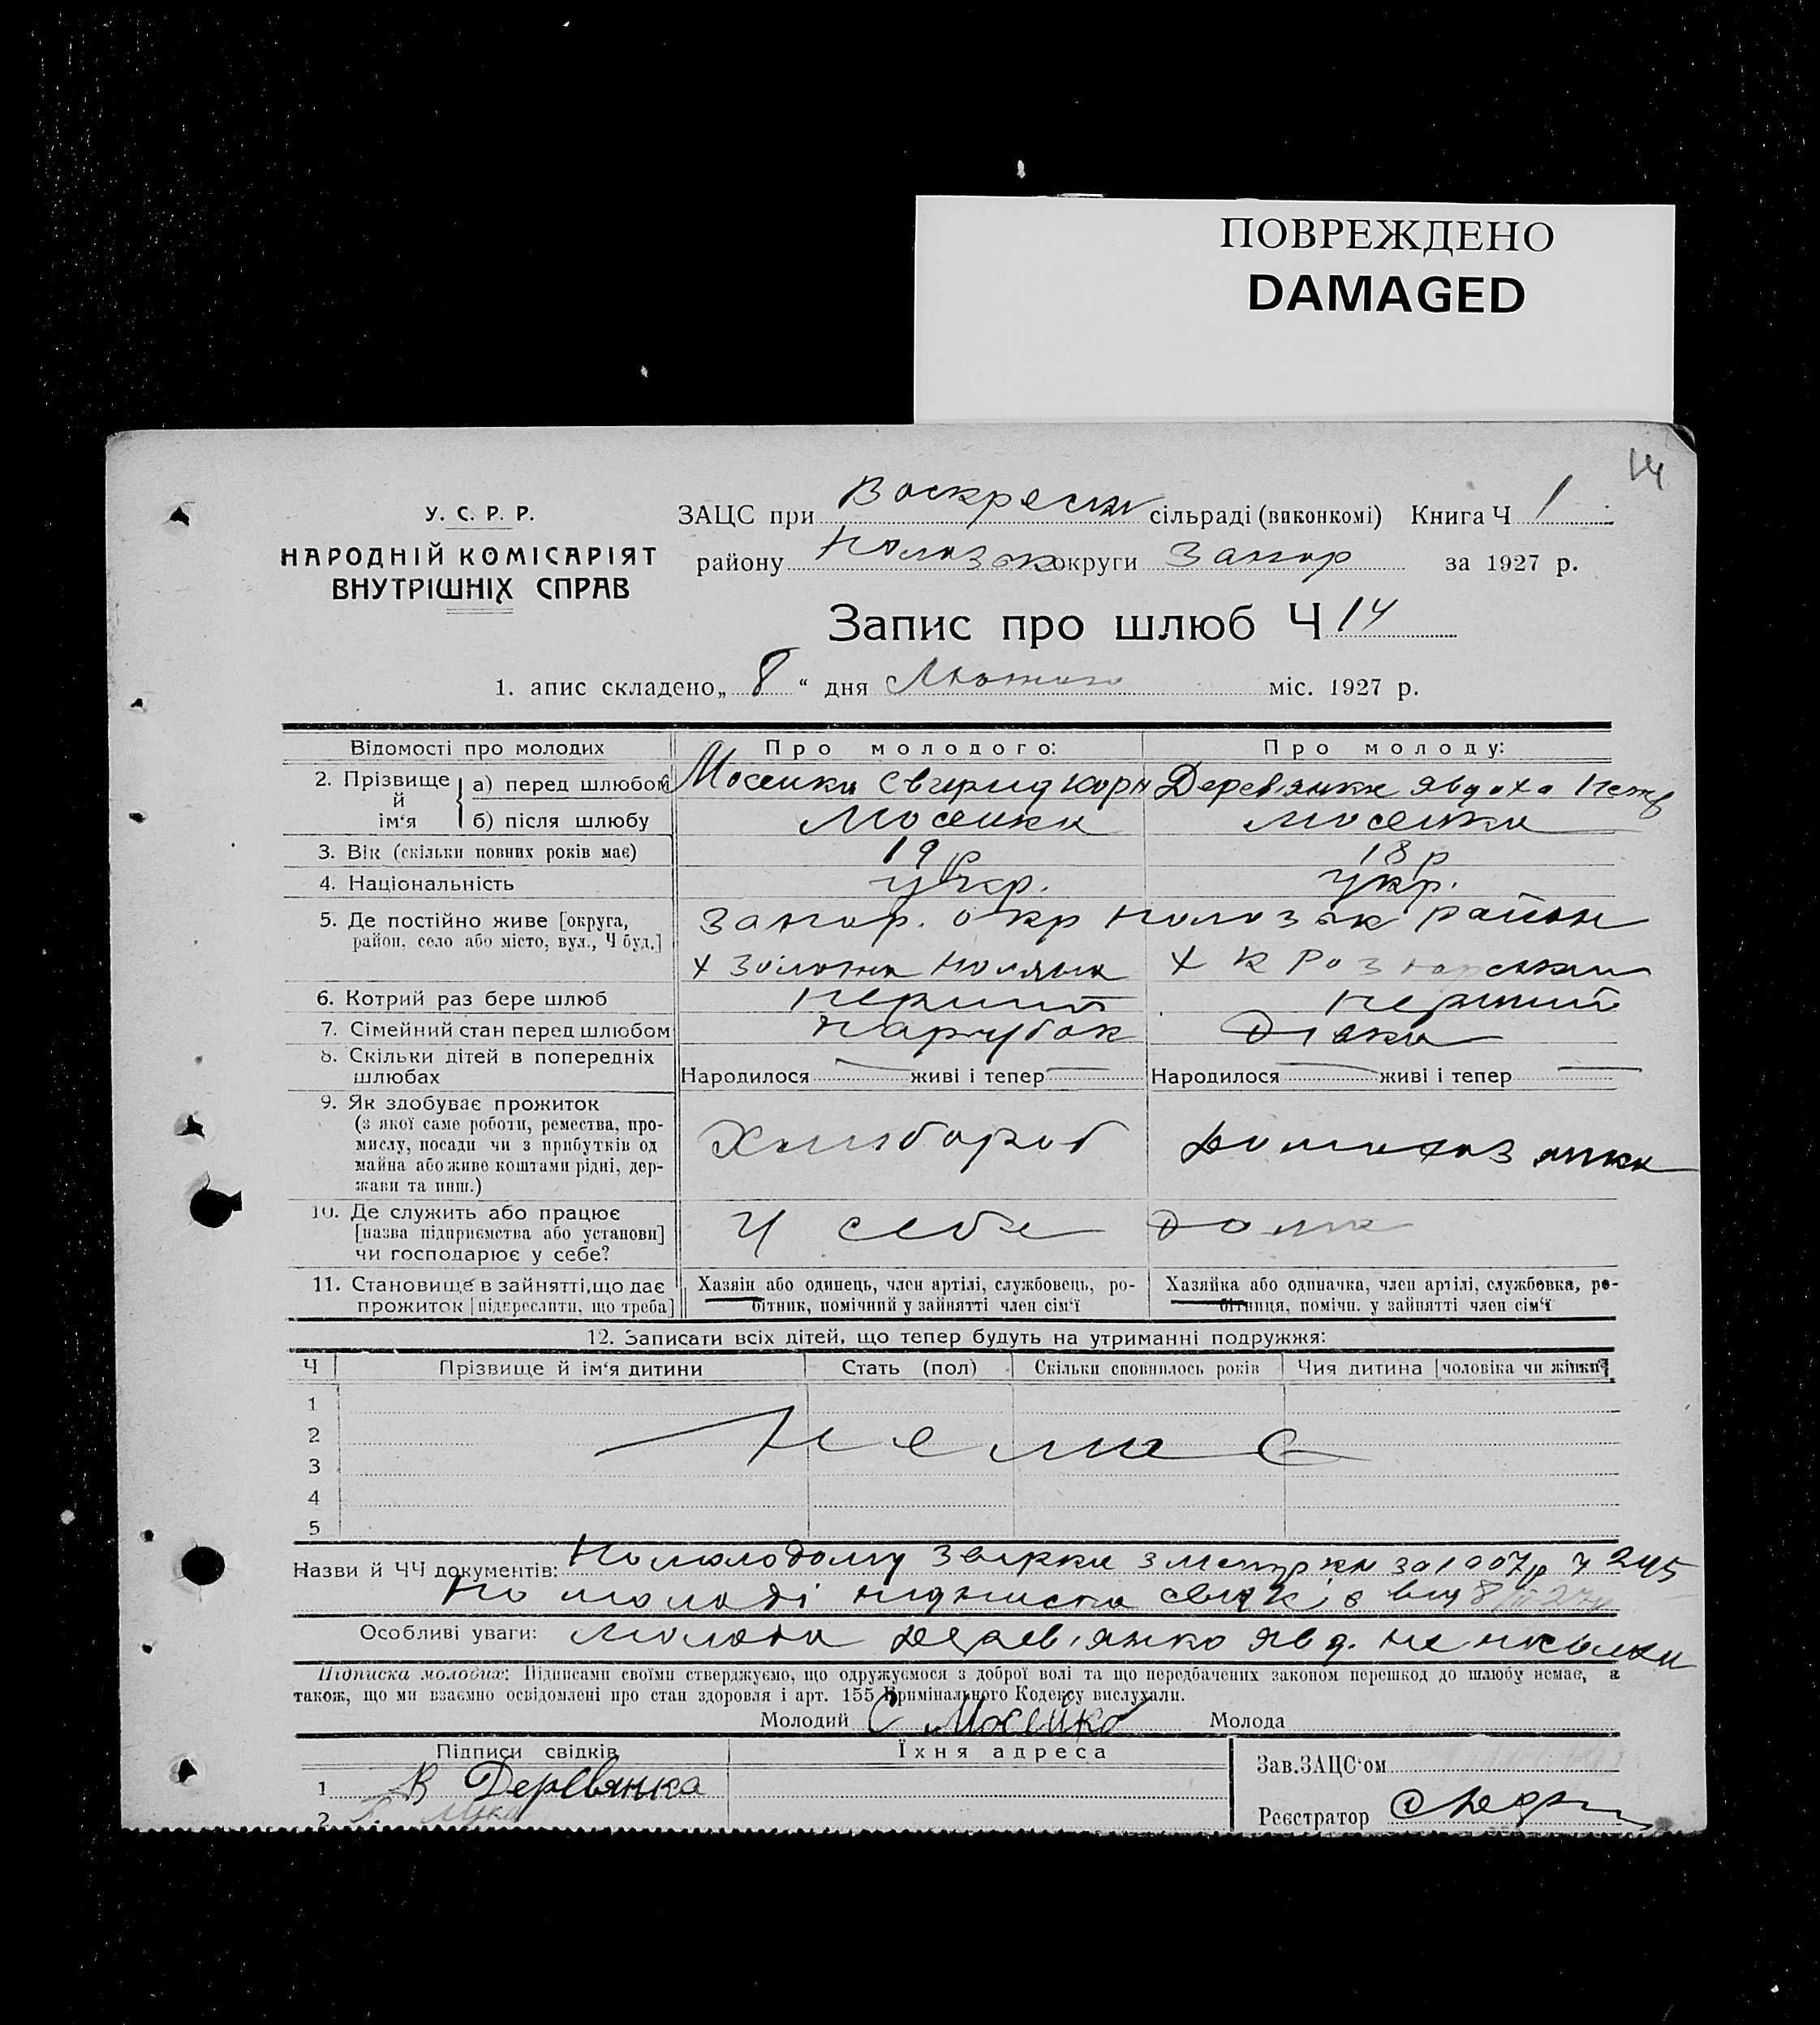 ПОВРЕЖДЕНО
DAMAGED
14
У. С. Р. Р.
НАРОДНІЙ КОМІСАРІЯТ
ВНУТРІШНІХ СПРАВ
ЗАЦС при Воскресен сільраді (виконкомі) Книга Ч 1
району Пологзьк округи Запор за 1927 р.
Запис про шлюб Ч 14
1. апис складено „ 8 “ дня Лютого міс. 1927 р.
Відомості про молодих Про молодого: Про молоду:
2. Прізвище й ім‘я
а) перед шлюбом Мосейко Свирид Корн Деревянко Явдоха Петр
б) після шлюбу Мосейко Мосейко
3. Вік (скільки повних років має) 19 р 18 р
4. Національність укр. укр.
5. Де постійно живе [округа, Запор. окр район
район, село або місто, вул., Ч буд.]
х Золота Поляна х К
6. Котрий раз бере шлюб перший перший
7. Сімейний стан перед шлюбом парубок дівка
8. Скільки дітей в попередніх
шлюбах Народилося — живі і тепер — Народилося — живі і тепер —
9. Як здобуває прожиток
(з якої саме роботи, ремества, про-
мислу, посади чи з прибутків од
майна або живе коштами рідні, дер-
жави та инш.)
Хлибороб Домохазяйка
10. Де служить або працює
[назва підприємства або установи]
чи господарює у себе?
У себе дома
11. Становище в зайнятті, що дає
прожиток [підкреслити, що треба]
Хазяін або одинець, член артілі, службовець, ро-
бітник, помічний у зайнятті член сім‘ї
Хазяйка або одиначка, член артілі, службовка, ро-
бітниця, помічн. у зайнятті член сім‘ї
12. Записати всіх дітей, що тепер будуть на утриманні подружжя:
Ч Прізвище й ім‘я дитини Стать (пол) Скільки сповнилось років Чия дитина [чоловіка чи жінки]
1
2 Немає
3
4
5
Назви й ЧЧ документів: По молодому звірки з метрки за 1907 р ч 245
По молоді підписка свідків від 8
Особливі уваги: Молода Деревянко Явд. не
Підписка молодих: Підписами своїми стверджуємо, що одружуємося з доброї волі та що передбачених законом перешкод до шлюбу немає, а
також, що ми взаємно освідомлені про стан здоровля і арт. 155 Кримінального Кодексу вислухали.
Молодий С Мосейко Молода
Підписи свідків Їхня адреса
1 В Деревянка
2
Зав.ЗАЦС‘ом
Реєстратор